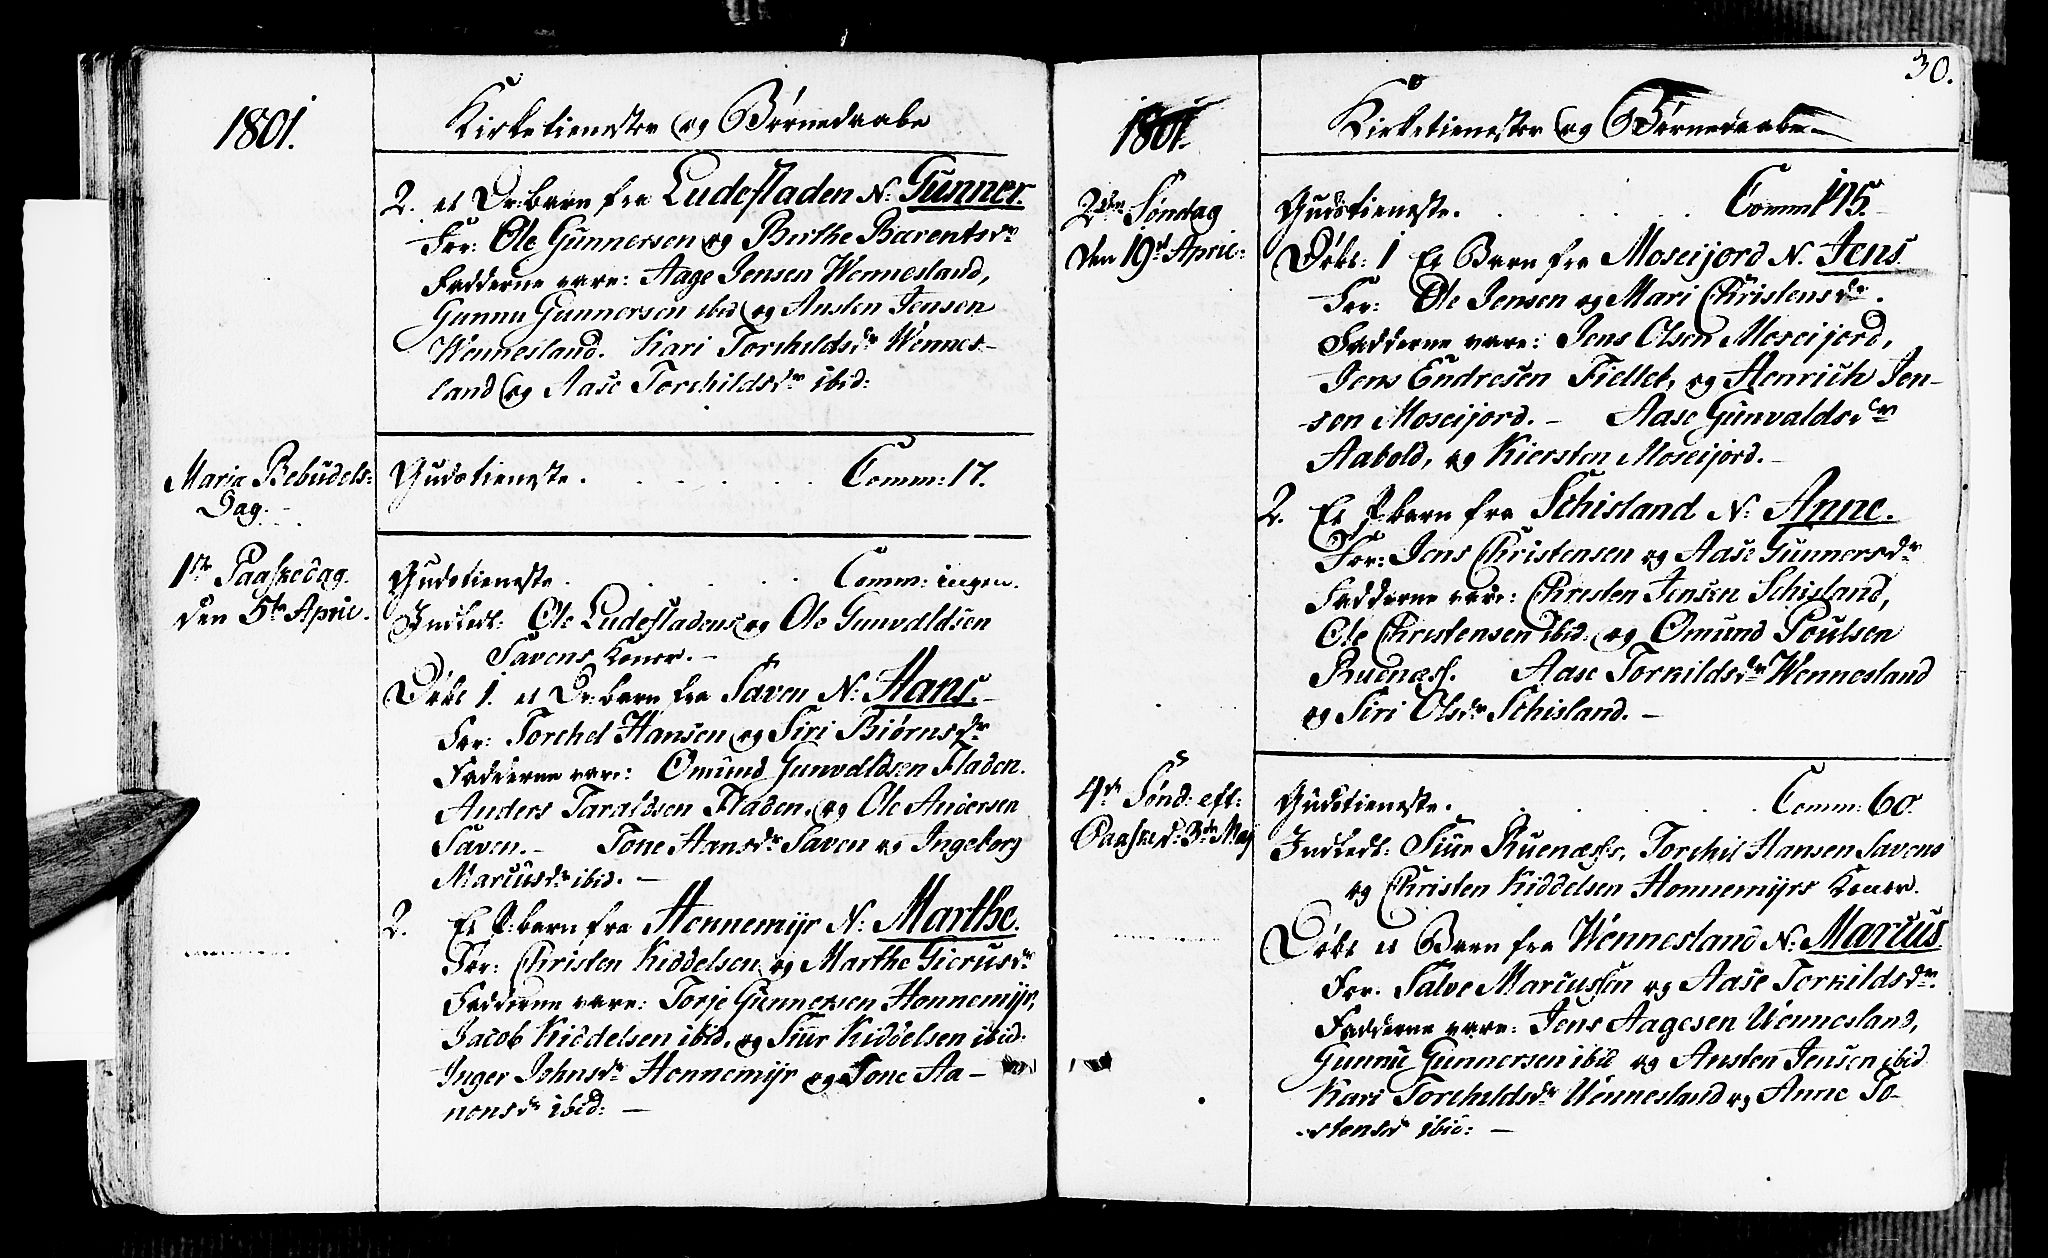 1801.
Kirketienester og Børnedaabe
2. et Dr: barn fra Ludefladen N: Gunner.
For: Ole Gunnersen og Birthe Barentsdr
Fadderne vare: Aage Jensen Wennesland,
Gunnu Gunnersen ibid og Ansten Jensen
Wennesland. Kari Torchildsdr Wennes-
land og Aase Torchildsdr ibid:
Mariæ Bebudels:
Dag.
Gudstieneste. Comm: 17.
1ste Paaskedag
den 5te April.
Gudstieneste. Comm: ingen.
Indledt: Ole Ludefladens og Ole Gunvaldsen
Savens Koner. -
Døbt 1. et Dr: barn fra Saven N: Hans. -
For: Torchel Hansen og Siri Biørnsdr
Fadderne vare: Omund Gunvaldsen Fladen.
Anders Taraldsen Fladen, og Ole Andersen
Saven. - Tone Hansdr Saven og Ingeborg
Marcusdr ibid. -
2. Et P: barn fra Honnemyr N: Marthe.
For: Christen Kiddelsen og Marthe Gierusdr
Fadderne vare: Torje Gunnersen Honnemyr,
Jacob Kiddelsen ibid, og Siur Kiddelsen ibid.
Inger Johnsdr Honnemyr og Tone Aa-
nonsdr ibid: -
30.
1801.
Kirketienester og Børnedaabe. -
2den Søndag
den 19de April:
Gudstieneste. Comm 175.
Døbt: 1 Et Barn fra Moseijord N. Jens.
For: Ole Jensen og Mari Christensdr.
Fadderne vare: Jens Olsen Moseijord,
Jens Endresen Fiellet, og Henrich Jen-
sen Moseijord. - Aase Gunvaldsdr
Aabold, og Kiersten Moseijord. -
2. Et P: barn fra Schisland N: Anne.
For: Jens Christensen og Aase Gunnersdr
Fadderne vare: Christen Jensen Schisland,
Ole Christensen ibid. og Omund Poulsen
Ruenæss. Aase Torkildsdr Wennesland
og Siri Olsdr Schisland. -
4de Sønd: eft:
Paaske d: 3de May
Gudstieneste. Comm: 60.
Indledt: Siur Ruenæsses, Torchil Hansen Savens
og Christen Kiddelsen Honnemyrs Koner.
Døbt et Barn fra Wennesland N: Marcus
For. Salve Marcussen og Aase Torkildsdr.
Fadderne vare: Jens Aagesen Wennesland,
Gunnu Gunnersen ibid og Ansten Jensen ibid
Kari Torchildsdr Wennesland og Anne To-
stensdr ibid: -